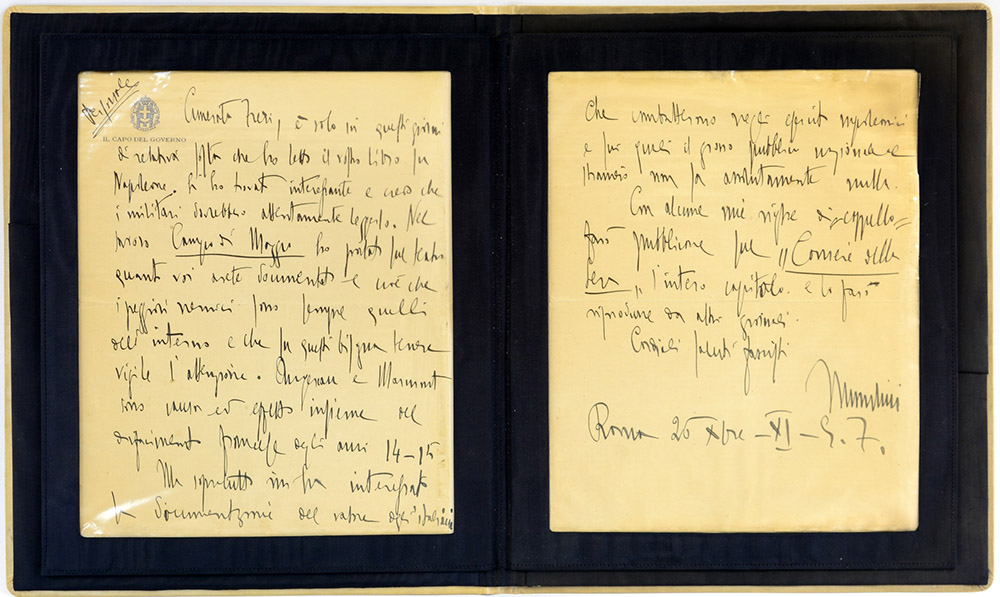 Personale
IL CAPO DEL GOVERNO
Camerata Freri, è solo in questi giorni
di relativa sosta che ho letto il vostro libro su
Napoleone. L'ho trovato interessante e credo che
i militari dovrebbero attentamente leggerlo. Nel
lavoro Campo di Maggio ho portato sul teatro
quanto voi avete documentato e cioè che
i peggiori nemici sono sempre quelli
dell'interno e che su questi bisogna tenere
vigile l'attenzione. Augereau e Marmont
sono causa ed effetto insieme del
disfacimento francese degli anni 14-15
Ma sopratutto mi ha interessato
la documentazione del valore degli italiani
che combatterono negli eserciti napoleonici
e sui quali il grosso pubblico nazionale e
straniero non sa assolutamente nulla.
Con alcune mie righe di cappello
farò pubblicare sul "Corriere della
Sera" l'intero capitolo. e lo farò
riprodurre da altri giornali.
Cordiali saluti fascisti
Mussolini
Roma 26 Xbre - XI - E. F.